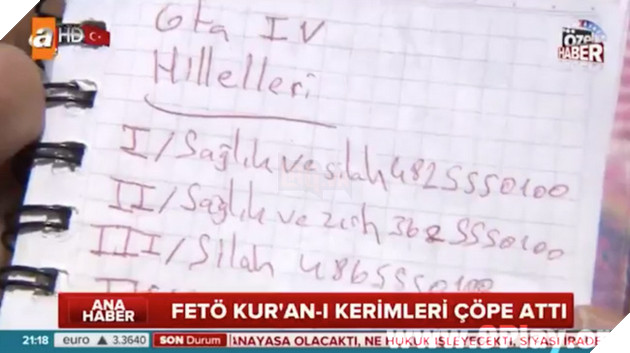 a HD
ÖZEL
HABER
Gta IV
Hillelleri
I/Sağlık ve silah 4825550100
II/Sağlık ve zırh 3625550100
III/Silah 4865550100
ANA
HABER
FETÖ KUR'AN-I KERİMLERİ ÇÖPE ATTI
21:18 euro ▲ 3.3640 SON Durum ANAYASA OLACAKTI, NE HUKUK İŞLEYECEKTİ, SİYASİ İRADE